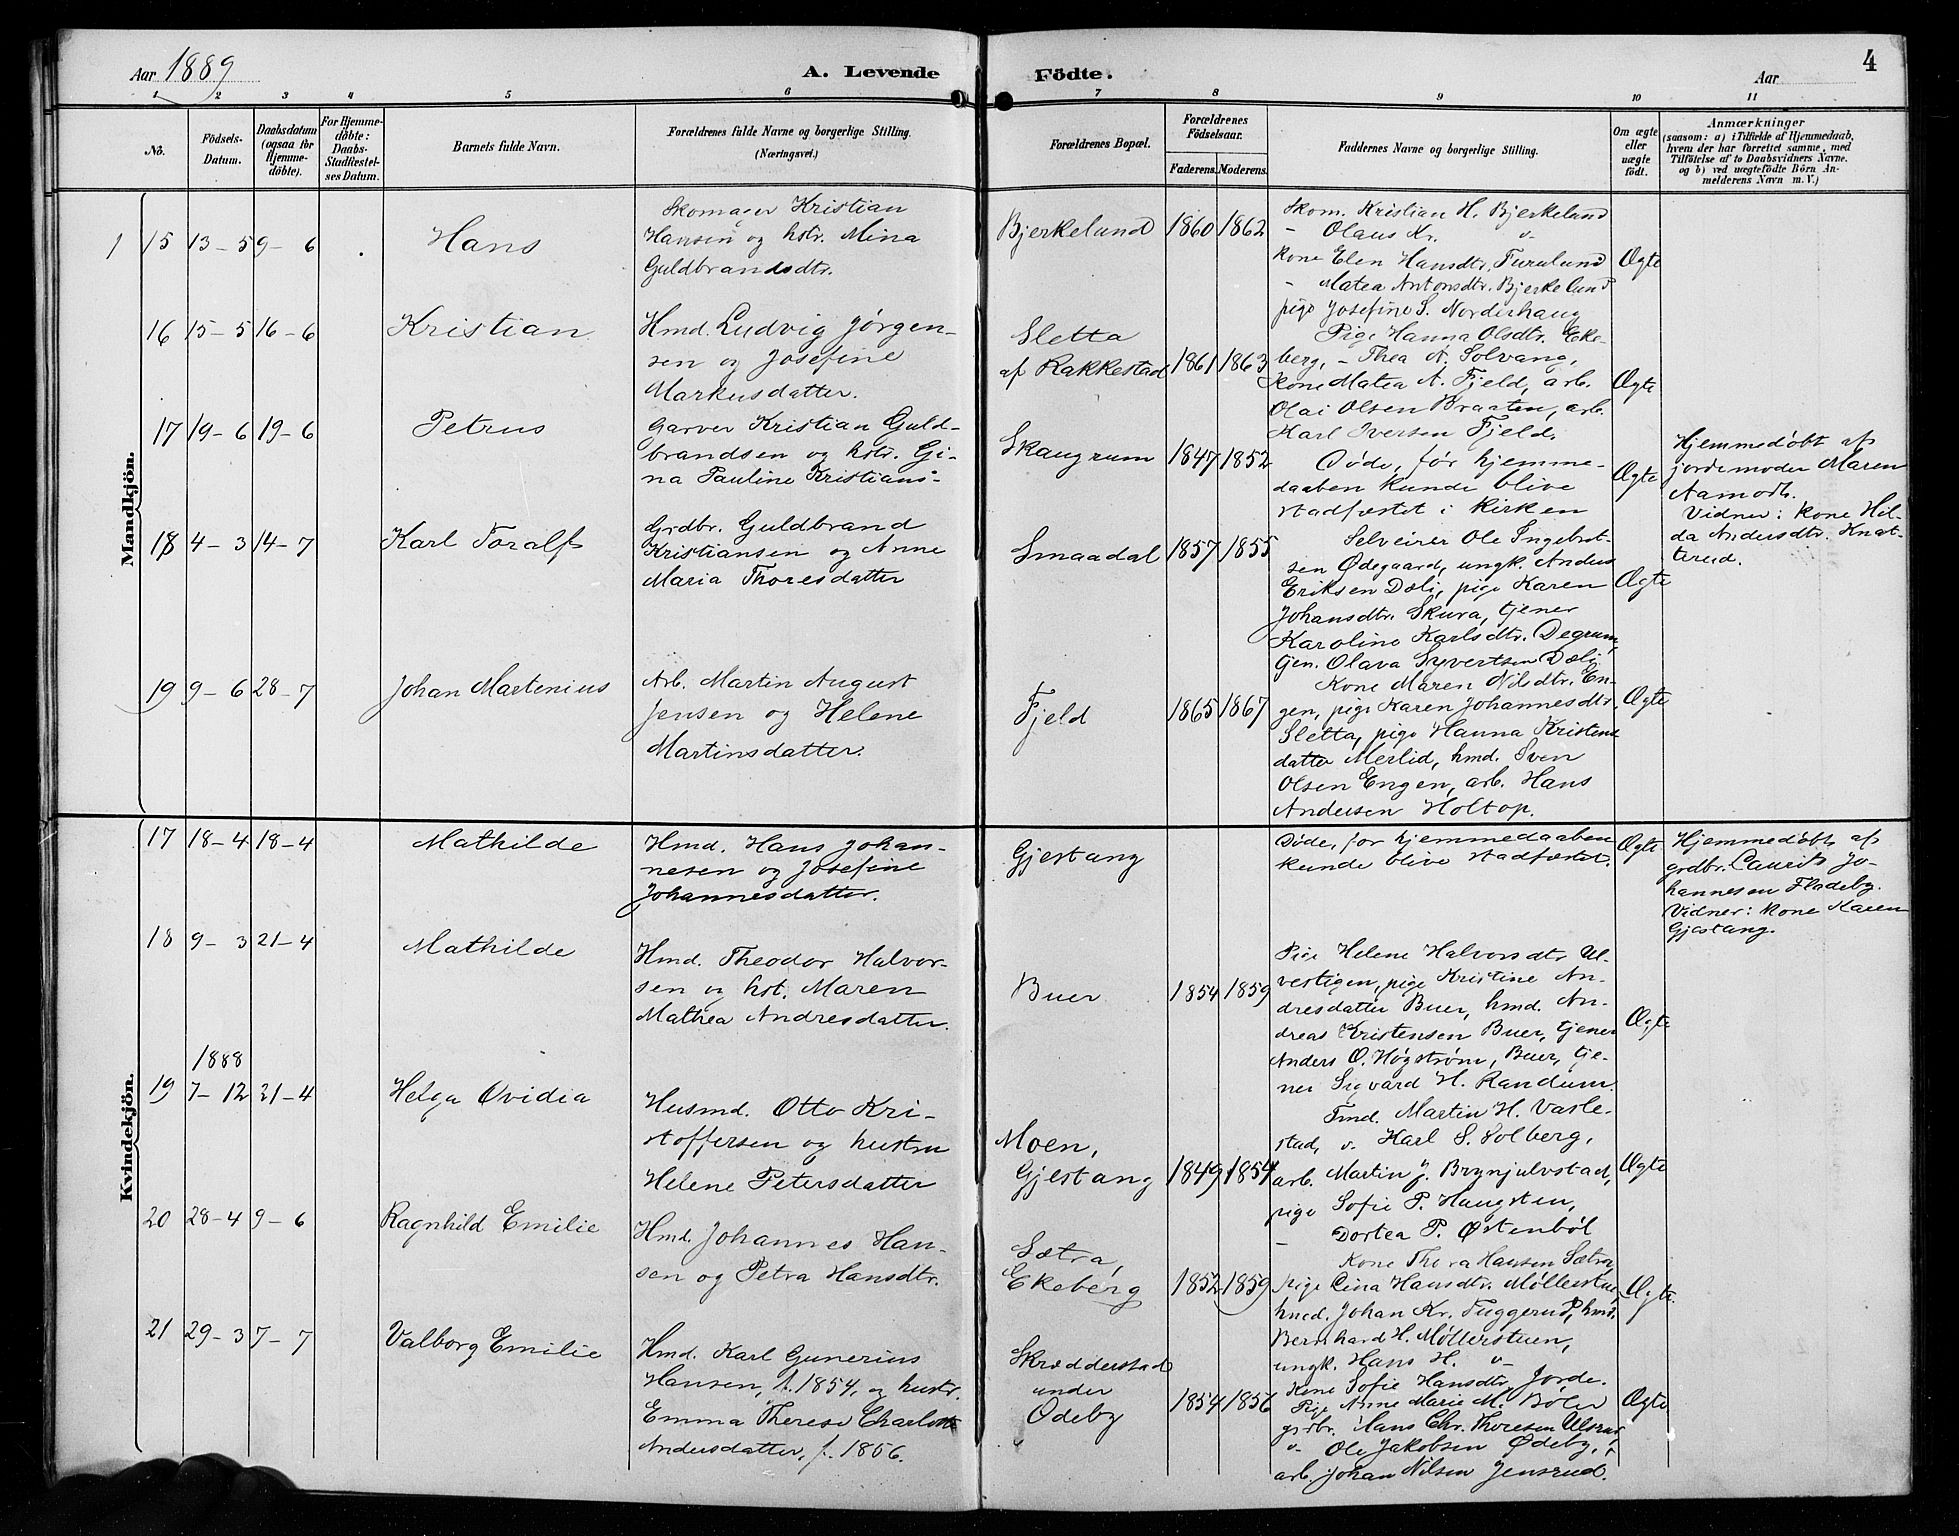 Aar 1889
A. Levende Födte.
Aar
4
1 2 3 4 5 6 7 8 9 10 11
No.
Födsels-Datum.
Daabsdatum (ogsaa for Hjemme-döbte).
For Hjemme-döbte: Daabs-Stadfæstel-ses Datum.
Barnets fulde Navn.
Forældrenes fulde Navne og borgerlige Stilling. (Næringsvei.)
Forældrenes Bopæl.
Forældrenes Födselsaar.
Faderens. Moderens.
Faddernes Navne og borgerlige Stilling.
Om ægte eller uægte födt.
Anmærkninger
(saasom: a) i Tilfælde af Hjemmedaab,
hvem der har forrettet samme, med
Tilföielse af to Daabsvidners Navne.
og b) ved uægtefödte Börn An-
melderens Navn m. V.)
Mandkjön.
1 15 13-5 9-6 Hans
Skomager Kristian
Hansen og hstr. Mina
Guldbrandsdtr.
Bjerkelund 1860 1862
Skom. Kristian H. Bjerkelund
- Olaus Kr. v-
kone Elen Hansdtr. Furulund
- Matea Antonsdtr. Bjerkelund
pige Josefine S. Norderhaug
Ægte
16 15-5 16-6 Kristian
Hmd. Ludvig Jørgen-
sen og Josefine
Markusdatter.
Sletta
af Rakkestad 1861 1863
Pige Hanna Olsdtr. Eke-
berg, - Thea A. Solvang,
kone Matea A. Fjeld, arb.
Olai Olsen Braaten, arb.
Karl Iversen Fjeld.
Ægte
17 19-6 19-6 Petrus
Garver Kristian Guld-
brandsen og hstr. Gi-
na Pauline Kristians-
Skaugrum 1847 1852
Døde, før hjemme-
daaben kunde blive
stadfæstet i kirken
Ægte
Hjemmedøbt af
jordemoder Maren
Aamodt.
Vidner: kone Hil-
da Andersdtr. Knat-
terud.
18 4-3 14-7 Karl Toralf
Grdbr. Guldbrand
Kristiansen og Anne
Maria Thoresdatter
Smaadal 1857 1855
Selveier Ole Ingebret-
sen Ødegaard, ungk. Anders
Eriksen Dæli, pige Karen
Johansdtr. Skura, tjener
Karoline Karlsdtr. Degrum,
tjen. Olava Syvertsen Dæli
Ægte
19 9-6 28-7 Johan Martenius
Arb. Martin August
Jensen og Helene
Martinsdatter.
Fjeld 1865 1867
Kone Maren Nilsdtr. En-
gen, pige Karen Johannesdtr.
Sletta, pige Hanna Kristens
datter Merlid, hmd. Sven
Olsen Engen, arb. Hans
Andersen Holtop.
Ægte
Kvindekjön.
17 18-4 18-4 Mathilde
Hmd. Hans Johan-
nesen og Josefine
Johannesdatter.
Gjestang
Døde, før hjemmedaaben
kunde blive stadfæstet.
Ægte
Hjemmedøbt af
grdbr. Laurits Jo-
hannesen Fladeby.
Vidner: kone Karen
Gjestang.
18 9-3 21-4 Mathilde
Hmd. Theodor Halvor-
sen og hst. Maren
Mathea Andresdatter.
Buer 1854 1859
Pige Helene Halvorsdtr. Ul-
vestigen, pige Kristine An-
dresdatter Buer, hmd. An-
dreas Kristensen Buer, tjener
Anders O. Høgstrøm, Buer, tje-
ner Sigvard H. Randum.
Ægte
1888
19 7-12 21-4 Helga Ovidia
Husmd. Otto Kri-
stoffersen og hustru
Helene Petersdatter
Moen,
Gjestang 1849 1854
Tmd. Martin H. Varle-
stad, v. Karl S. Solberg,
arb. Martin J. Brynjulvstad,
pige Sofie P. Haugsten,
- Dortea P. Østenbøl
Ægte
20 28-4 9-6 Ragnhild Emilie
Hmd. Johannes Han-
sen og Petra Hansdtr.
Sætra,
Ekeberg 1852 1859
Kone Thora Hansen Sætra,
pige Lina Hansdtr. Møllerstuen,
hmd. Johan Kr. Tuggerud, hmd.
Bernhard H. Møllerstuen,
ungk. Hans H. v-
Ægte.
21 29-3 7-7 Valborg Emilie
Hmd. Karl Gunerius
Hansen, f. 1854, og hustr.
Emma Therese Charlotte
Andersdatter, f. 1856.
Skrædderstad
under
Ødeby 1854 1856
Kone Sofie Hansdtr. Jorde.
Pige Anne Marie M. Bøler
grdbr. Hans Chr. Thoresen Ulsrud,
v Ole Jakobsen Ødeby,
arb. Johan Nilsen Jensrud.
Ægte